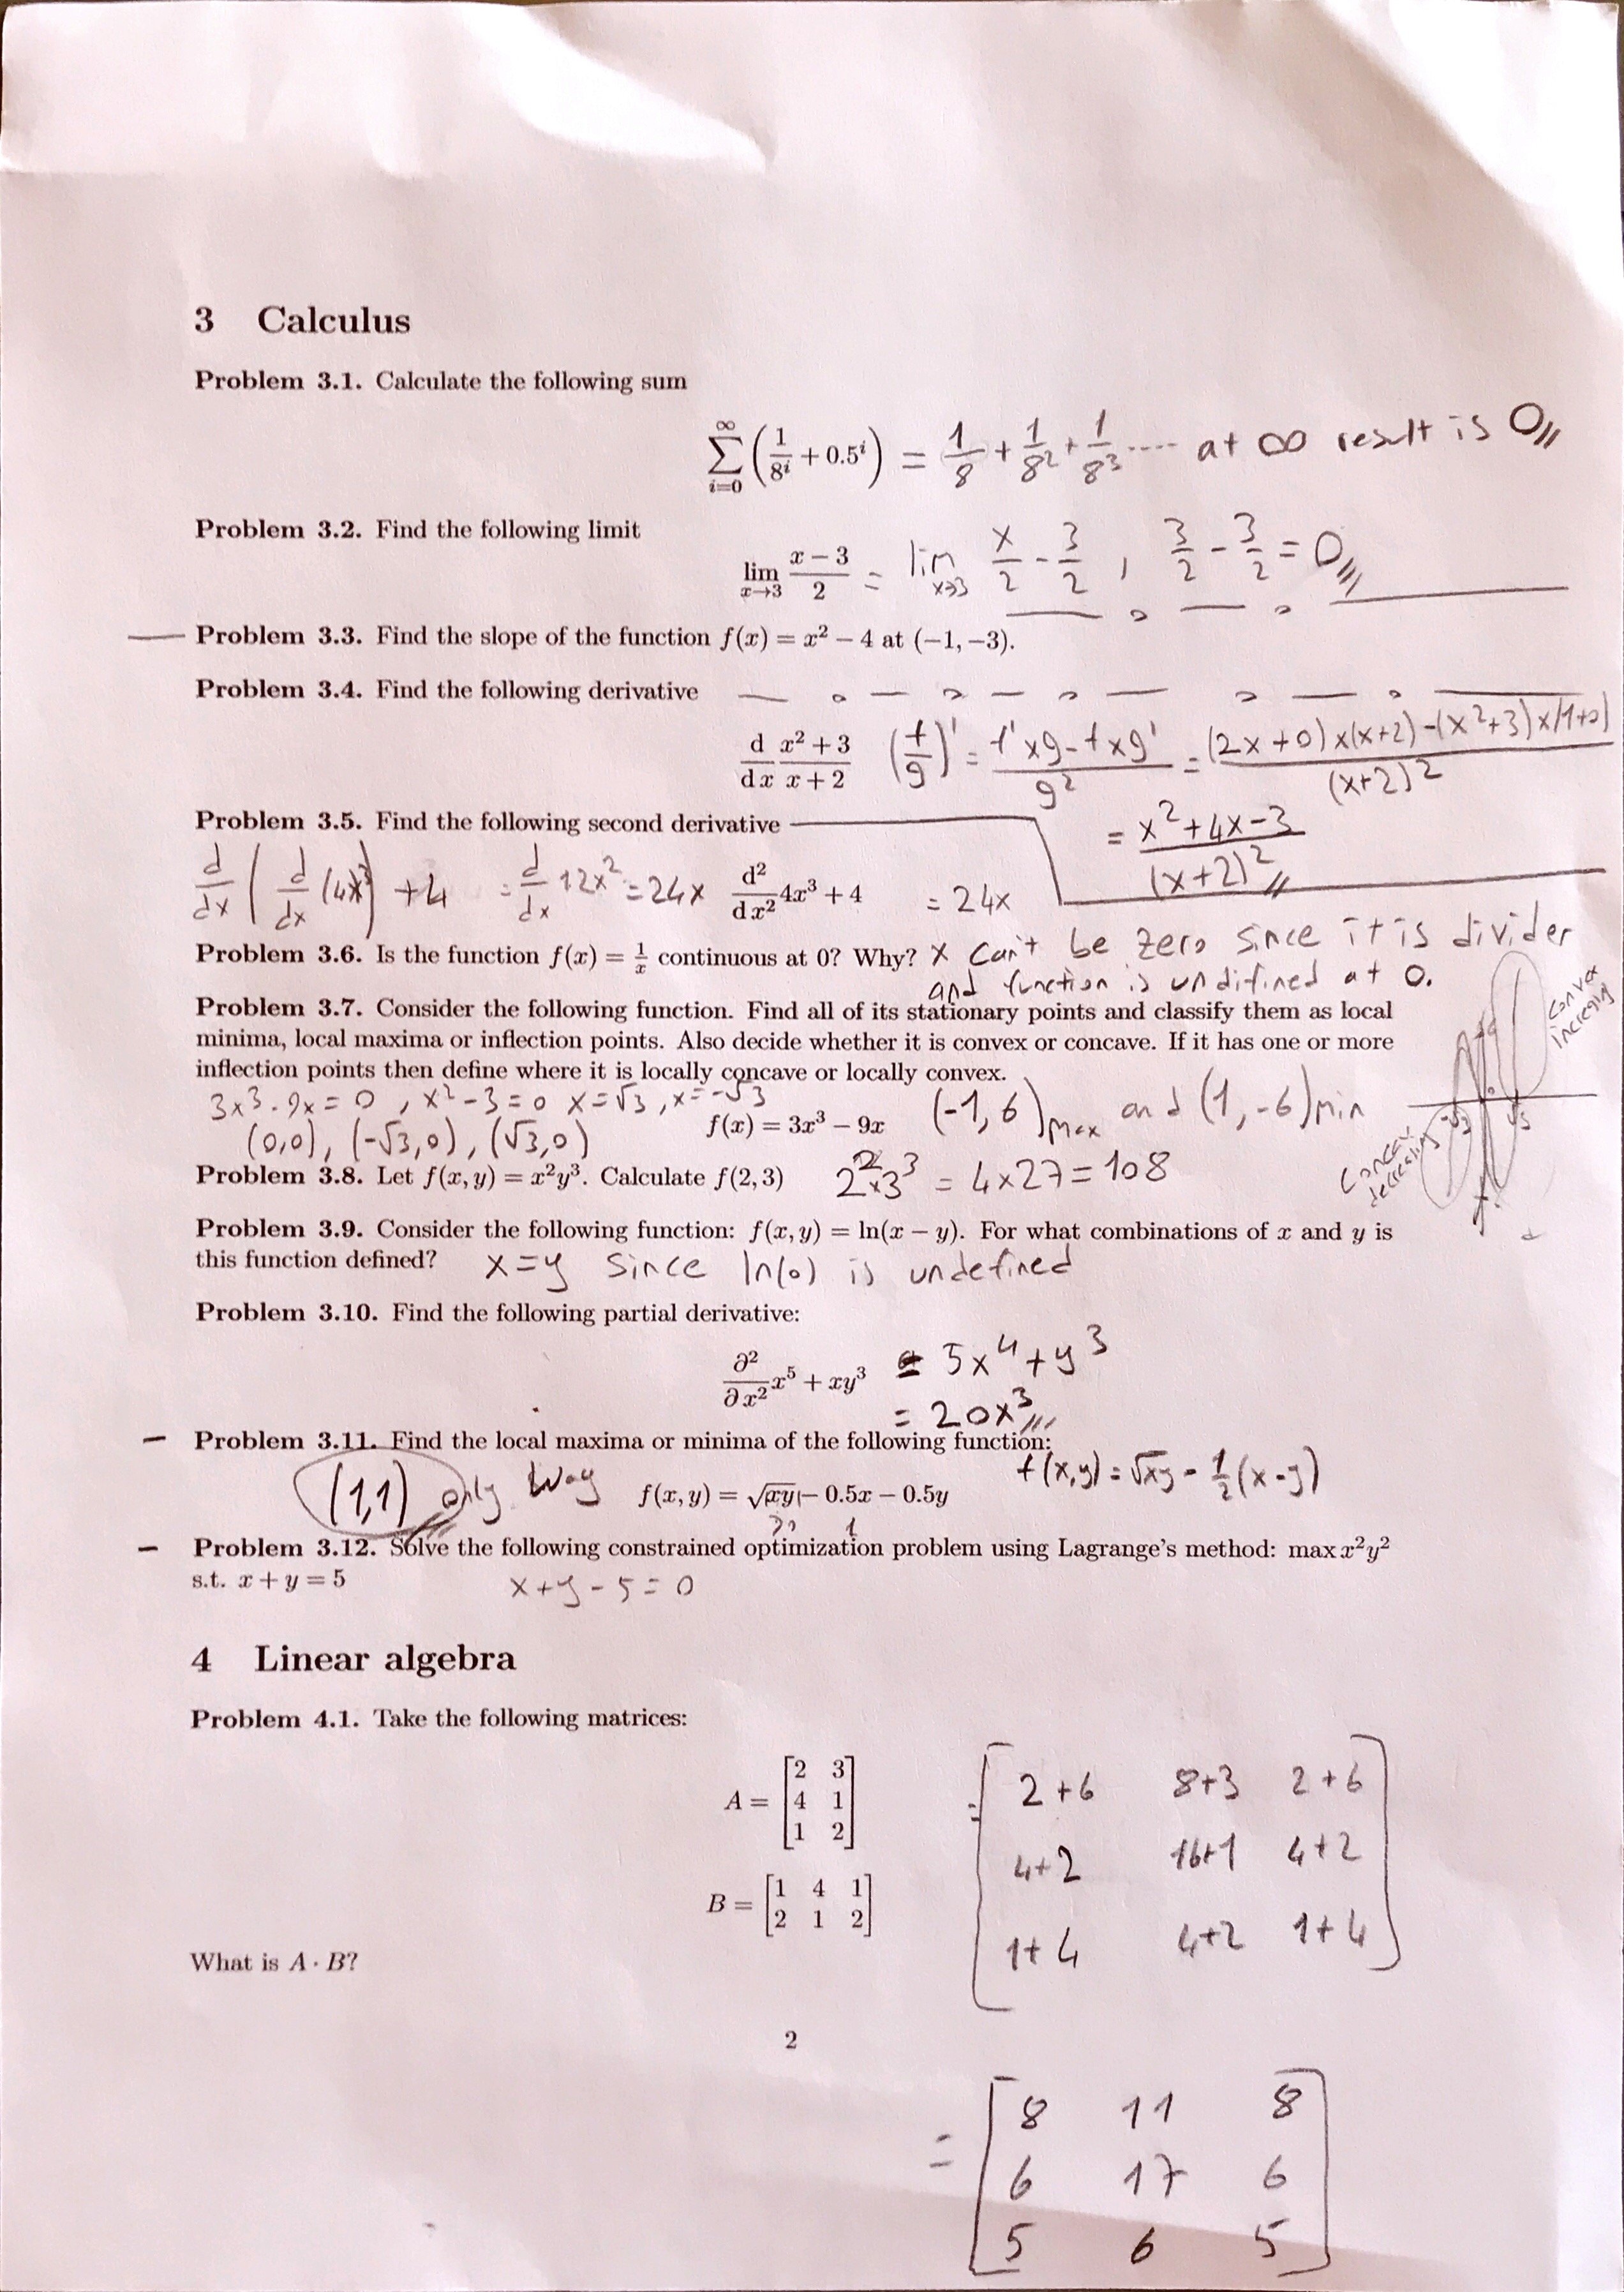 3 Calculus
Problem 3.1. Calculate the following sum
∑_{i=0}^{∞} (1/8^i + 0.5^i) = 1/8 + 1/8² + 1/8³ ---- at ∞ result is 0//
Problem 3.2. Find the following limit
lim_{x→3} (x − 3)/2 = lim_{x→3} x/2 - 3/2 , 3/2 - 3/2 = 0//
Problem 3.3. Find the slope of the function f(x) = x² − 4 at (−1, −3).
Problem 3.4. Find the following derivative
d/dx (x² + 3)/(x + 2) (f/g)' = (f'xg - fxg')/g² = ((2x+0)x(x+2)-(x²+3)x(1+0))/(x+2)²
= (x²+4x-3)/(x+2)² //
Problem 3.5. Find the following second derivative
d/dx ( d/dx (4x³) +4 = d/dx 12x² = 24x d²/dx² 4x³ + 4 = 24x
Problem 3.6. Is the function f(x) = 1/x continuous at 0? Why? X can't be zero since it is divider
and function is undifined at 0.
Problem 3.7. Consider the following function. Find all of its stationary points and classify them as local
minima, local maxima or inflection points. Also decide whether it is convex or concave. If it has one or more
inflection points then define where it is locally concave or locally convex.
3x³-9x=0 , x²-3=0 x=√3 , x=-√3
f(x) = 3x³ − 9x (-1,6)max and (1,-6)min
(0,0), (-√3,0), (√3,0)
convex
Problem 3.8. Let f(x, y) = x²y³. Calculate f(2, 3) 2²x3³ = 4x27=108
Problem 3.9. Consider the following function: f(x, y) = ln(x − y). For what combinations of x and y is
this function defined? x=y since ln(0) is undefined
Problem 3.10. Find the following partial derivative:
∂²/∂x² x⁵ + xy³ = 5x⁴+y³
= 20x³///
Problem 3.11. Find the local maxima or minima of the following function:
(1,1) only way f(x, y) = √xy − 0.5x − 0.5y f(x,y) = √xy - 1/2(x-y)
Problem 3.12. Solve the following constrained optimization problem using Lagrange's method: max x²y²
s.t. x + y = 5 x+y-5=0
4 Linear algebra
Problem 4.1. Take the following matrices:
A = [2 3
4 1
1 2]
B = [1 4 1
2 1 2]
= [2+6 8+3 2+6
4+2 16+1 4+2
1+4 4+2 1+4]
What is A · B?
2
= [8 11 8
6 17 6
5 6 5]